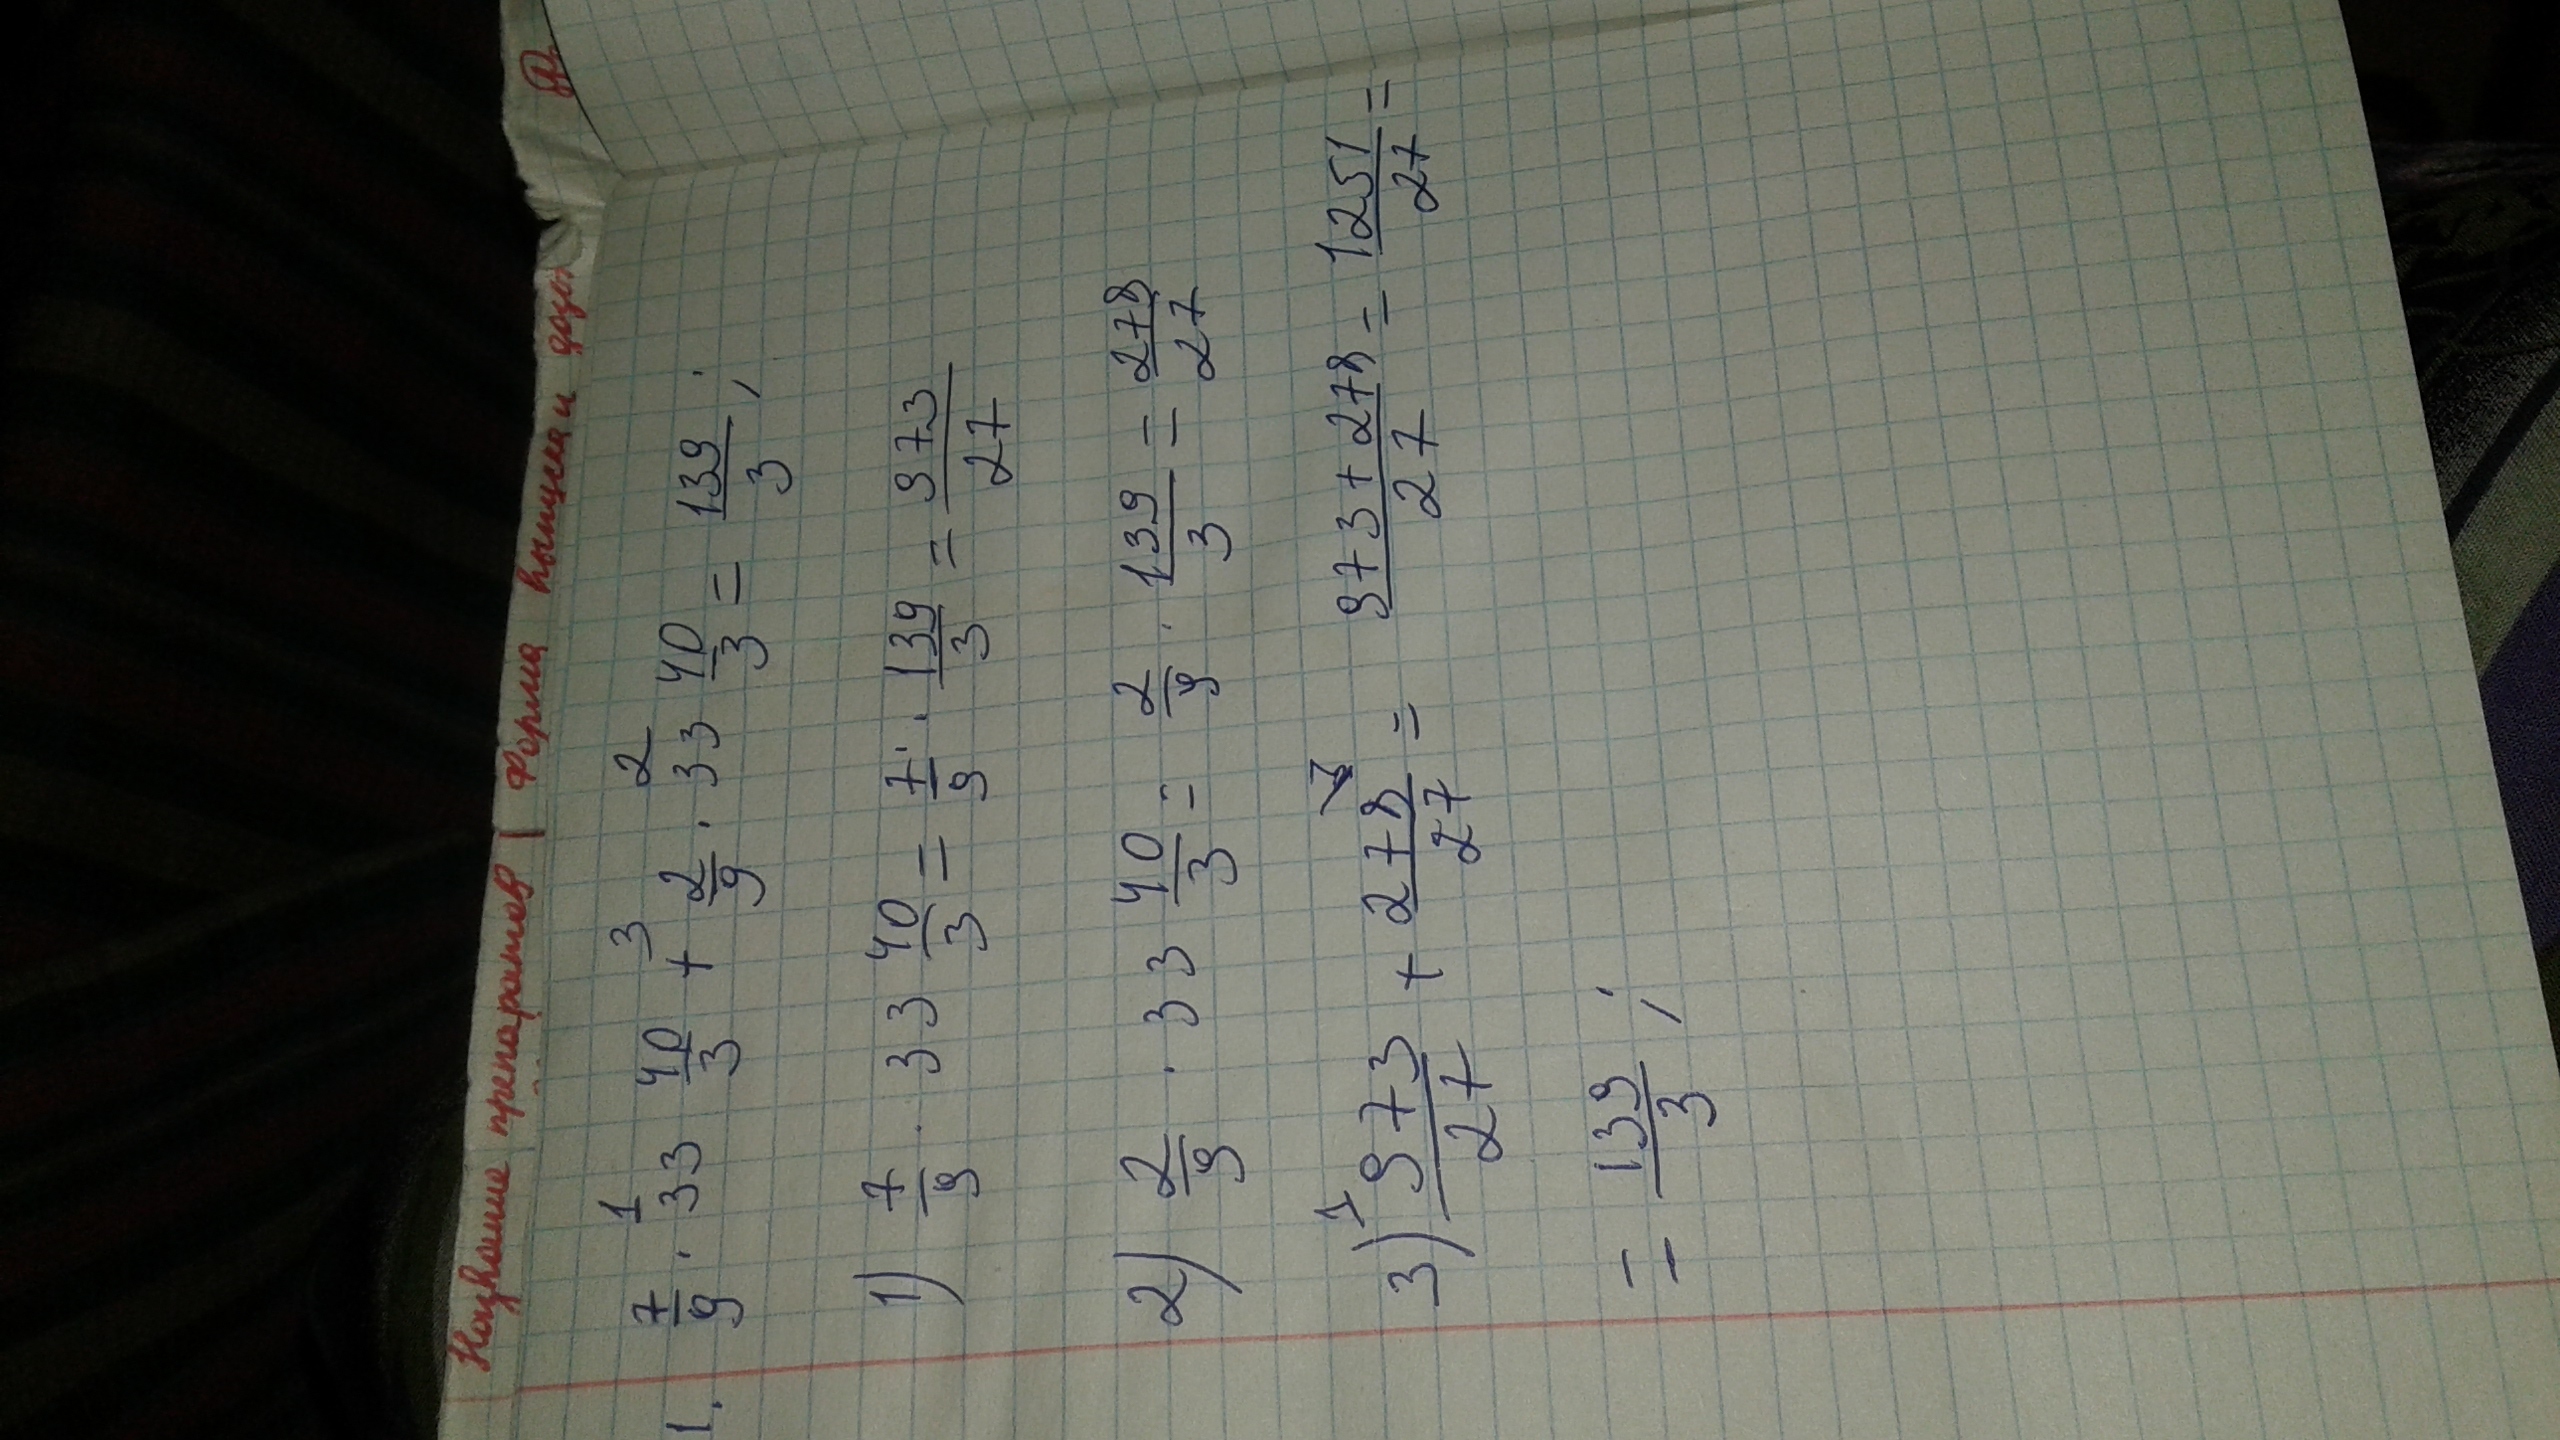 Название препаратов | Форма выписки и дозы
1. 7/9 · 33 40/3 + 2/9 · 33 40/3 = 139/3 ;
1 3 2
1) 7/9 · 33 40/3 = 7/9 · 139/3 = 973/27
2) 2/9 · 33 40/3 = 2/9 · 139/3 = 278/27
3) 973/27 + 278/27 = 973+278/27 = 1251/27 =
= 139/3 ;